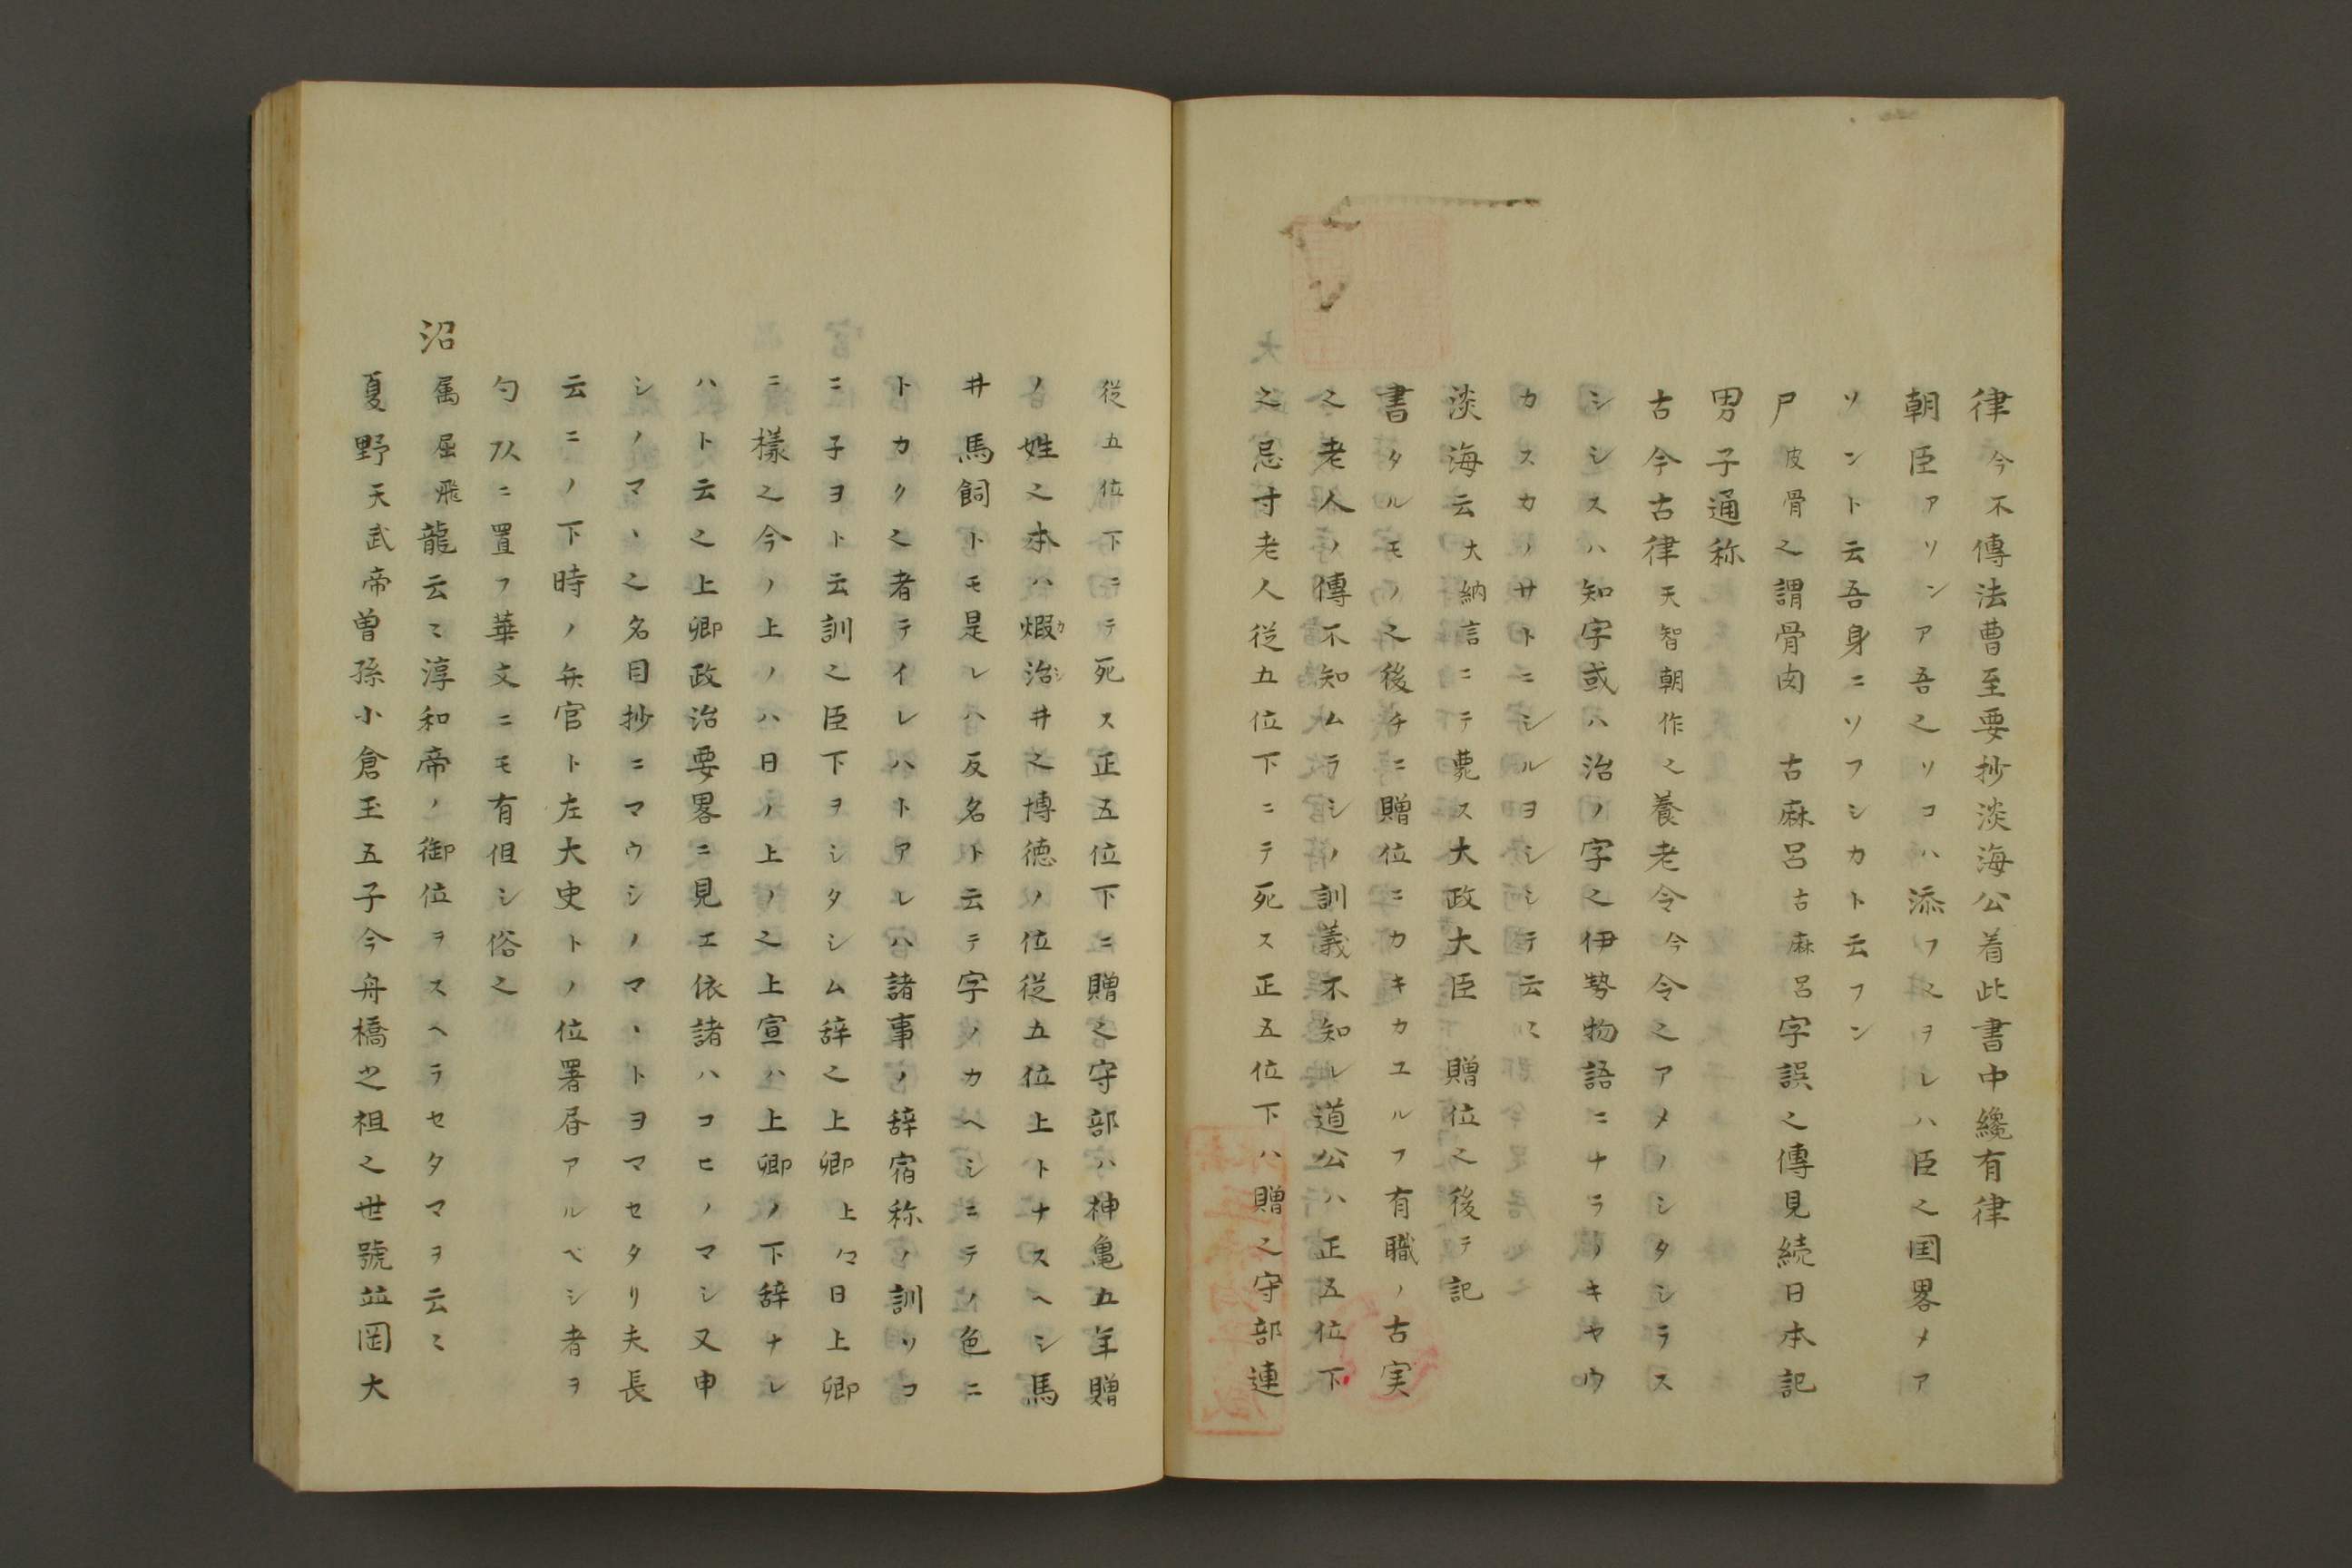 律今不傳法曹至要抄淡海公着此書中纔有律
朝臣アソンア吾之ソコハ添フ之ヲレハ臣之国畧メア
ソント云吾身ニソフシカト云フン
尸皮骨之謂骨肉　古麻呂古麻呂字誤之傳見続日本記
男子通称
古今古律天智朝作之養老令今令之アメノシタシラス
シシスハ知字或ハ治ノ字之伊勢物語ニナラノキヤウ
カスカノサトニシルヨシシテ云〻
淡海云大納言ニテ薨ス大政大臣　贈位之後テ記
書タルモノ之後チニ贈位ニカキカユルフ有職ノ古実
之老人ノ傳不知ムラシノ訓義不知レ道公ハ正五位下
之忌寸老人従五位下ニテ死ス正五位下ハ贈之守部連
従五位下ニテ死ス正五位下ニ贈之守部ハ神亀五年贈
ノ姓之本ハ煆治カシ井之博徳ノ位従五位上トナスヘシ馬
井馬飼トモ是レハ反名ト云テ字ノカヘシニテノ色ニ
トカク之者テイレハトアレハ諸事ノ辞宿称ノ訓ソコ
ニ子ヨト云訓之臣下ヲシタシム辞之上卿上〻日上卿
ニ樣之今ノ上ノハ日ノ上ノ之上宣ハ上卿ノ下辞ナレ
ハト云之上卿政治要畧ニ見エ依諸ハコヒノマシ又申
シノマヽ之名目抄ニマウシノマヽトヨマセタリ夫長
云ニノ下時ノ弁官ト左大史トノ位署昏アルベシ者ヲ
勺㕥ニ置フ華文ニモ有但シ俗之
沼　属屈飛龍云〻淳和帝ノ御位ヲスヘラセタマヲ云〻
夏野天武帝曽孫小倉玉五子今舟橋之祖之世號並岡大